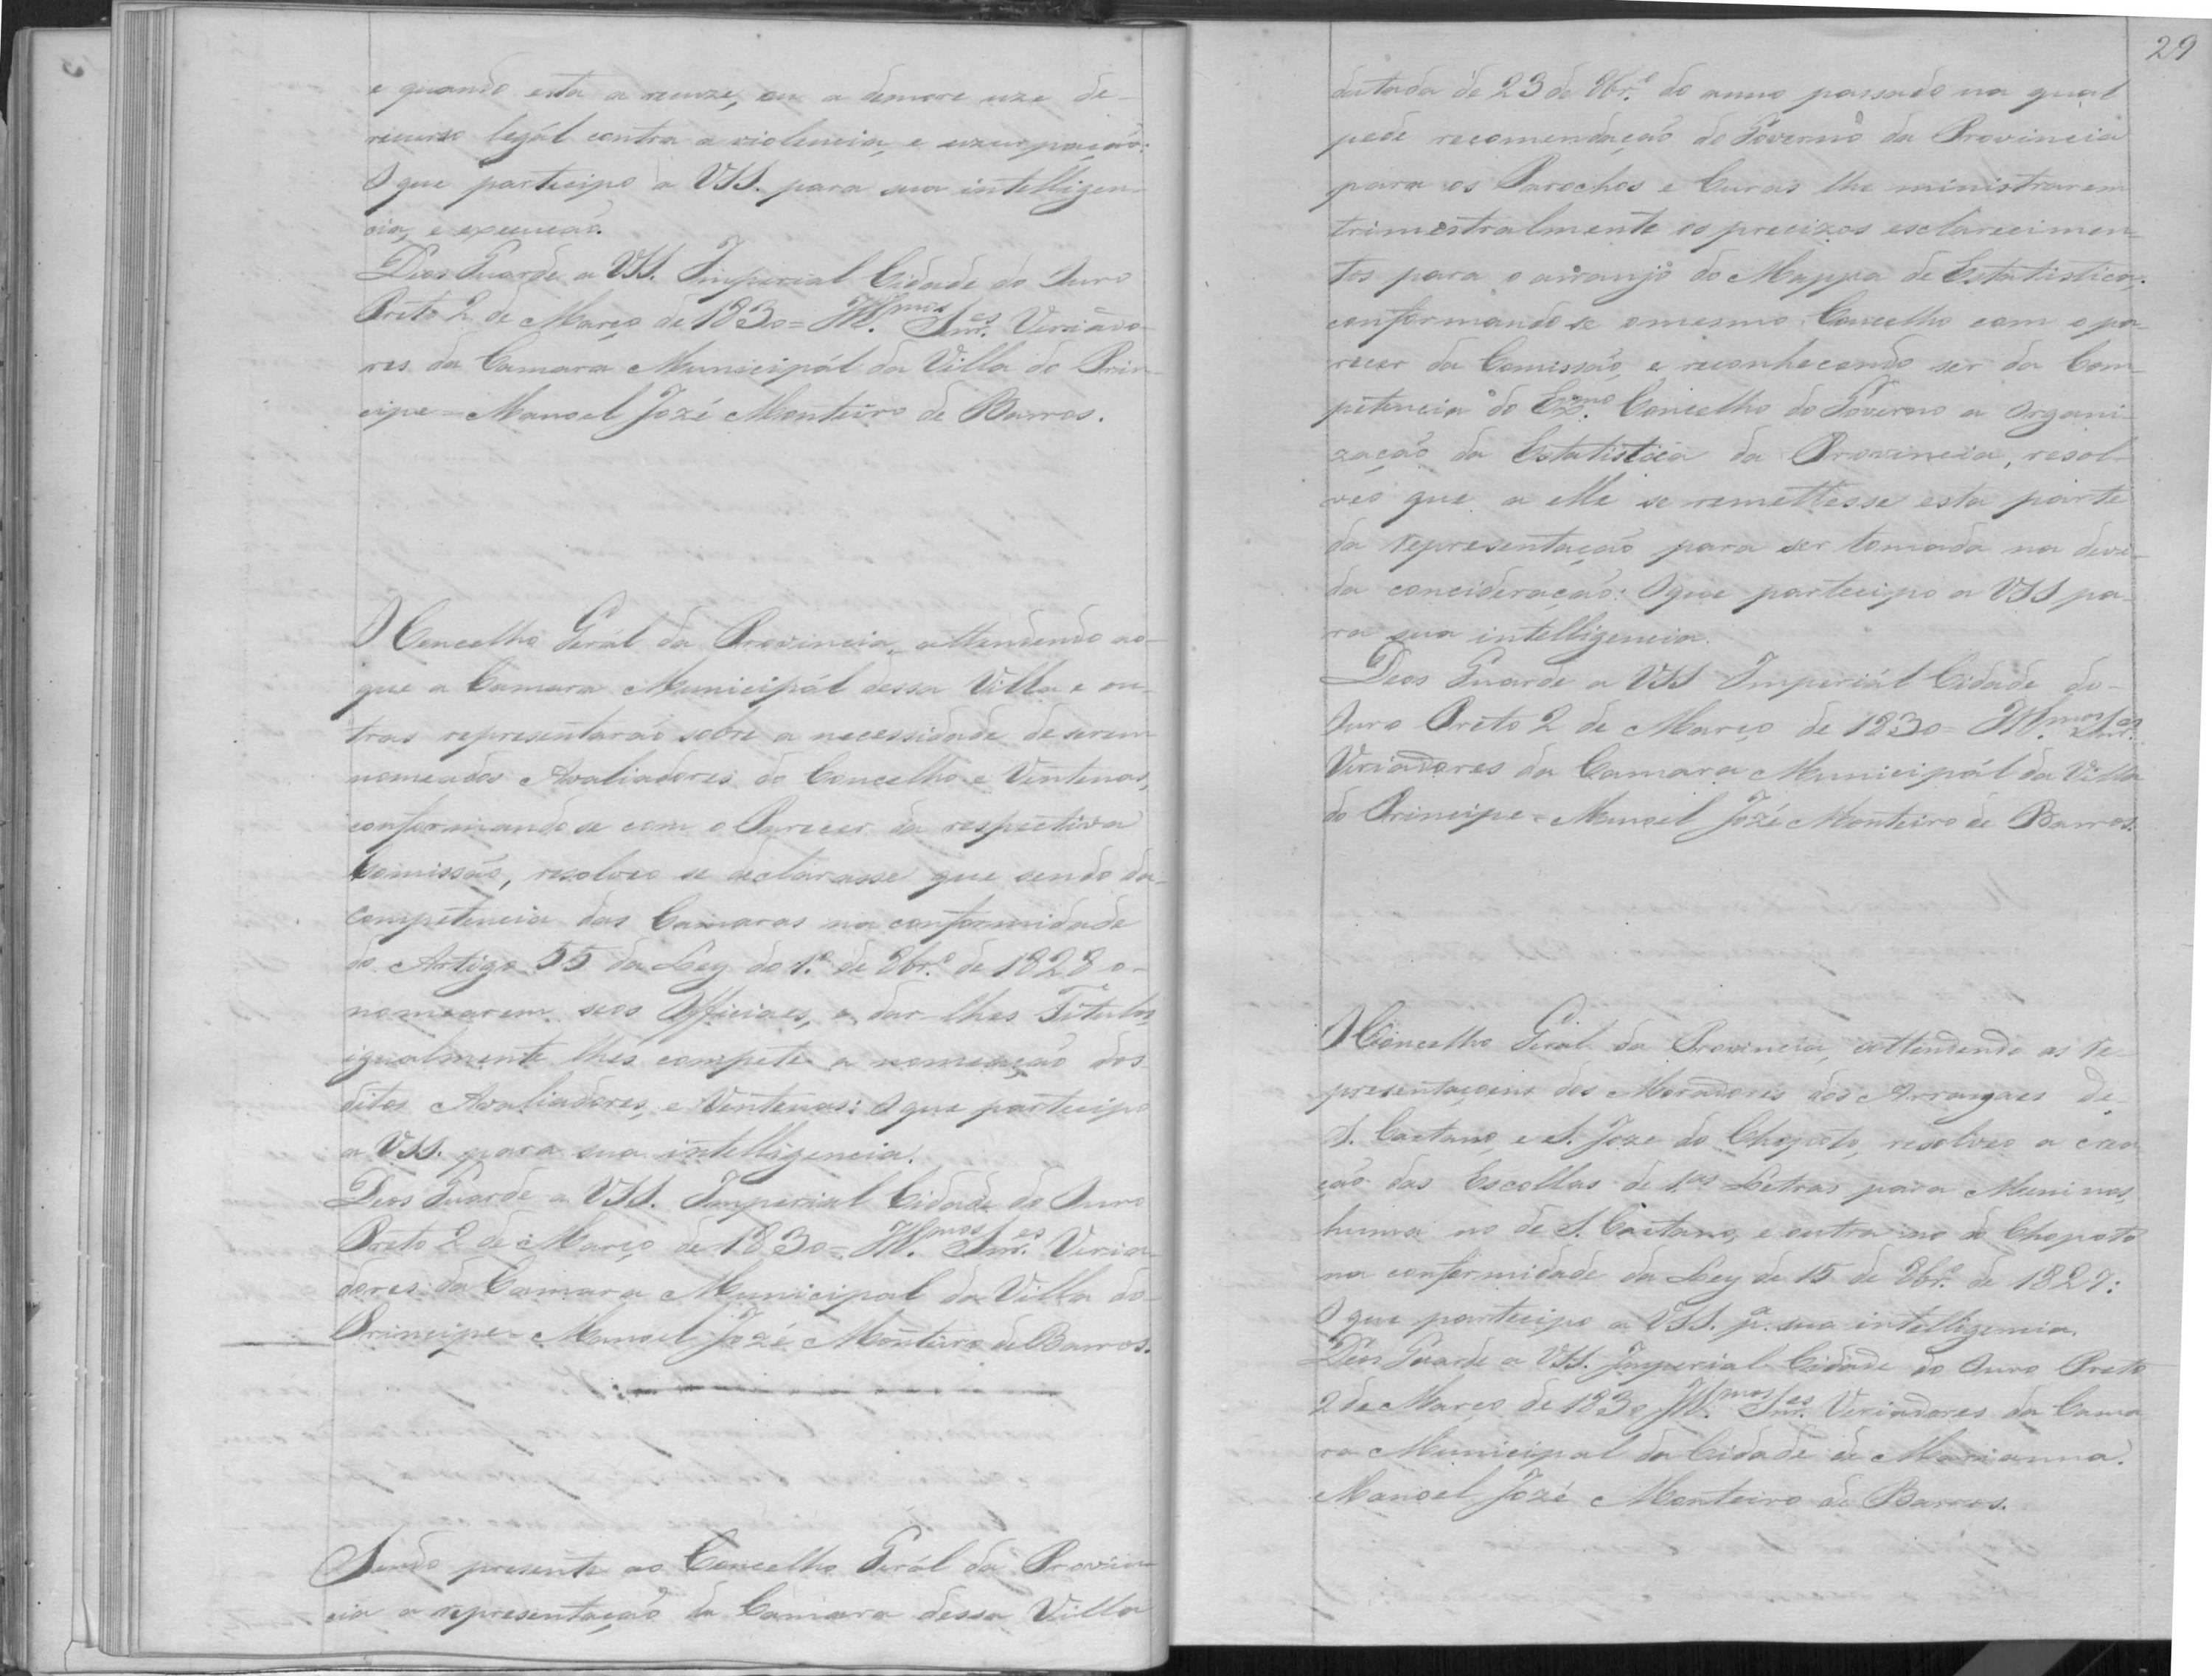 e quando esta a recuze, ou a demore uze de-
recurso legál contra a violencia, e uzurpação:
O que participo a VSS. para sua intelligen-
cia, e execução.
Deos Guarde a VSS. Imperial Cidade do Ouro
Preto 2 de Março de 1830= Ill.mos Snr.es Veriado-
res da Camara Municipál da Villa do Prin-
cipe= Manoel Jozé Monteiro de Barros.
O Concelho Gerál da Provincia, attendendo ao-
que a Camara Municipál dessa Villa e ou-
tras representarão sobre a necessidade de serem
nomeados Avaliadores do Concelho e Ventenas,
conformando se com o Parecer da respectiva
Comissão, resolveo se declarasse que sendo da-
Competencia das Camaras na conformidade
do Artigo 55 da Ley do 1.º de 8br.º de 1828 o-
nomearem seos Officiaes, e dar-lhes Titulos,
igualmente lhes compete a nomeação dos-
ditos Avaliadores, e Ventenas: O que participo
a VSS. para sua intelligencia.
Deos Guarde a VSS. Imperial Cidade do Ouro
Preto 2 de Março de 1830= Ill.mos Snr.es Veria-
dores da Camara Municipal da Villa do-
Principe= Manoel Jozé Monteiro de Barros.
Sendo presente ao Concelho Gerál da Provin-
cia a representação da Camara dessa Villa
29
datada de 23 de 8br.º do anno passado na qual
pede recomendação do Governo da Provincia
para os Parochos e Curas lhe ministrarem
trimestralmente os precizos esclarecimen-
tos para o arranjo do Mappa de Estatistica,
conformando se o mesmo Concelho com o pa-
recer da Comissão, e reconhecendo ser da Com-
petencia do Ex.mo Concelho do Governo a Organi-
zação da Estatistica da Provincia, resol-
veo que a elle se remettesse esta parte
da representação para ser tomada na devi-
da concideração: O que participo a VSS pa-
ra sua intelligencia.
Deos Guarde a VSS Imperiál Cidade do-
Ouro Preto 2 de Março de 1830= Ill.mos Snr.es
Veriadores da Camara Municipál da Villa
do Principe= Manoel Jozé Monteiro de Barros.
O Concelho Geral da Provincia, attendendo as re-
presentaçoens dos Moradores dos Arrayaes de
S. Caetano, e S. Joze do Chopoto, resolveo a crea-
ção das Escollas de 1.as Letras para Meninas,
huma no de S. Caetano, e outra no do Chopoto
na conformidade da Ley de 15 de 8br.º de 1827:
O que participo a VSS. p.a sua intelligencia.
Deos Guarde a VSS. Imperial Cidade do Ouro Preto
2 de Março de 1830 Ill.mos Snr.es Veriadores da Cama-
ra Municipal da Cidade de Marianna.
Manoel Jozé Monteiro de Barros.